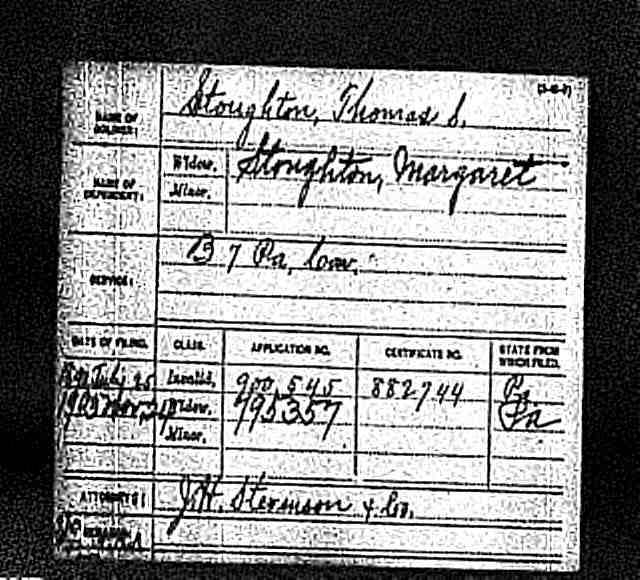 (3-45-7)
NAME OF SOLDIER: Stoughton, Thomas S.
NAME OF DEPENDENT: Widow, Stoughton, Margaret
Minor,
SERVICE: B 7 Pa, Cav.
DATE OF FILING. CLASS. APPLICATION NO. CERTIFICATE NO. STATE FROM WHICH FILED.
July 25 Invalid, 900,545 882744 Pa
Widow, 795357 Pa
Minor,
ATTORNEY: J.H. Stevenson & Co.